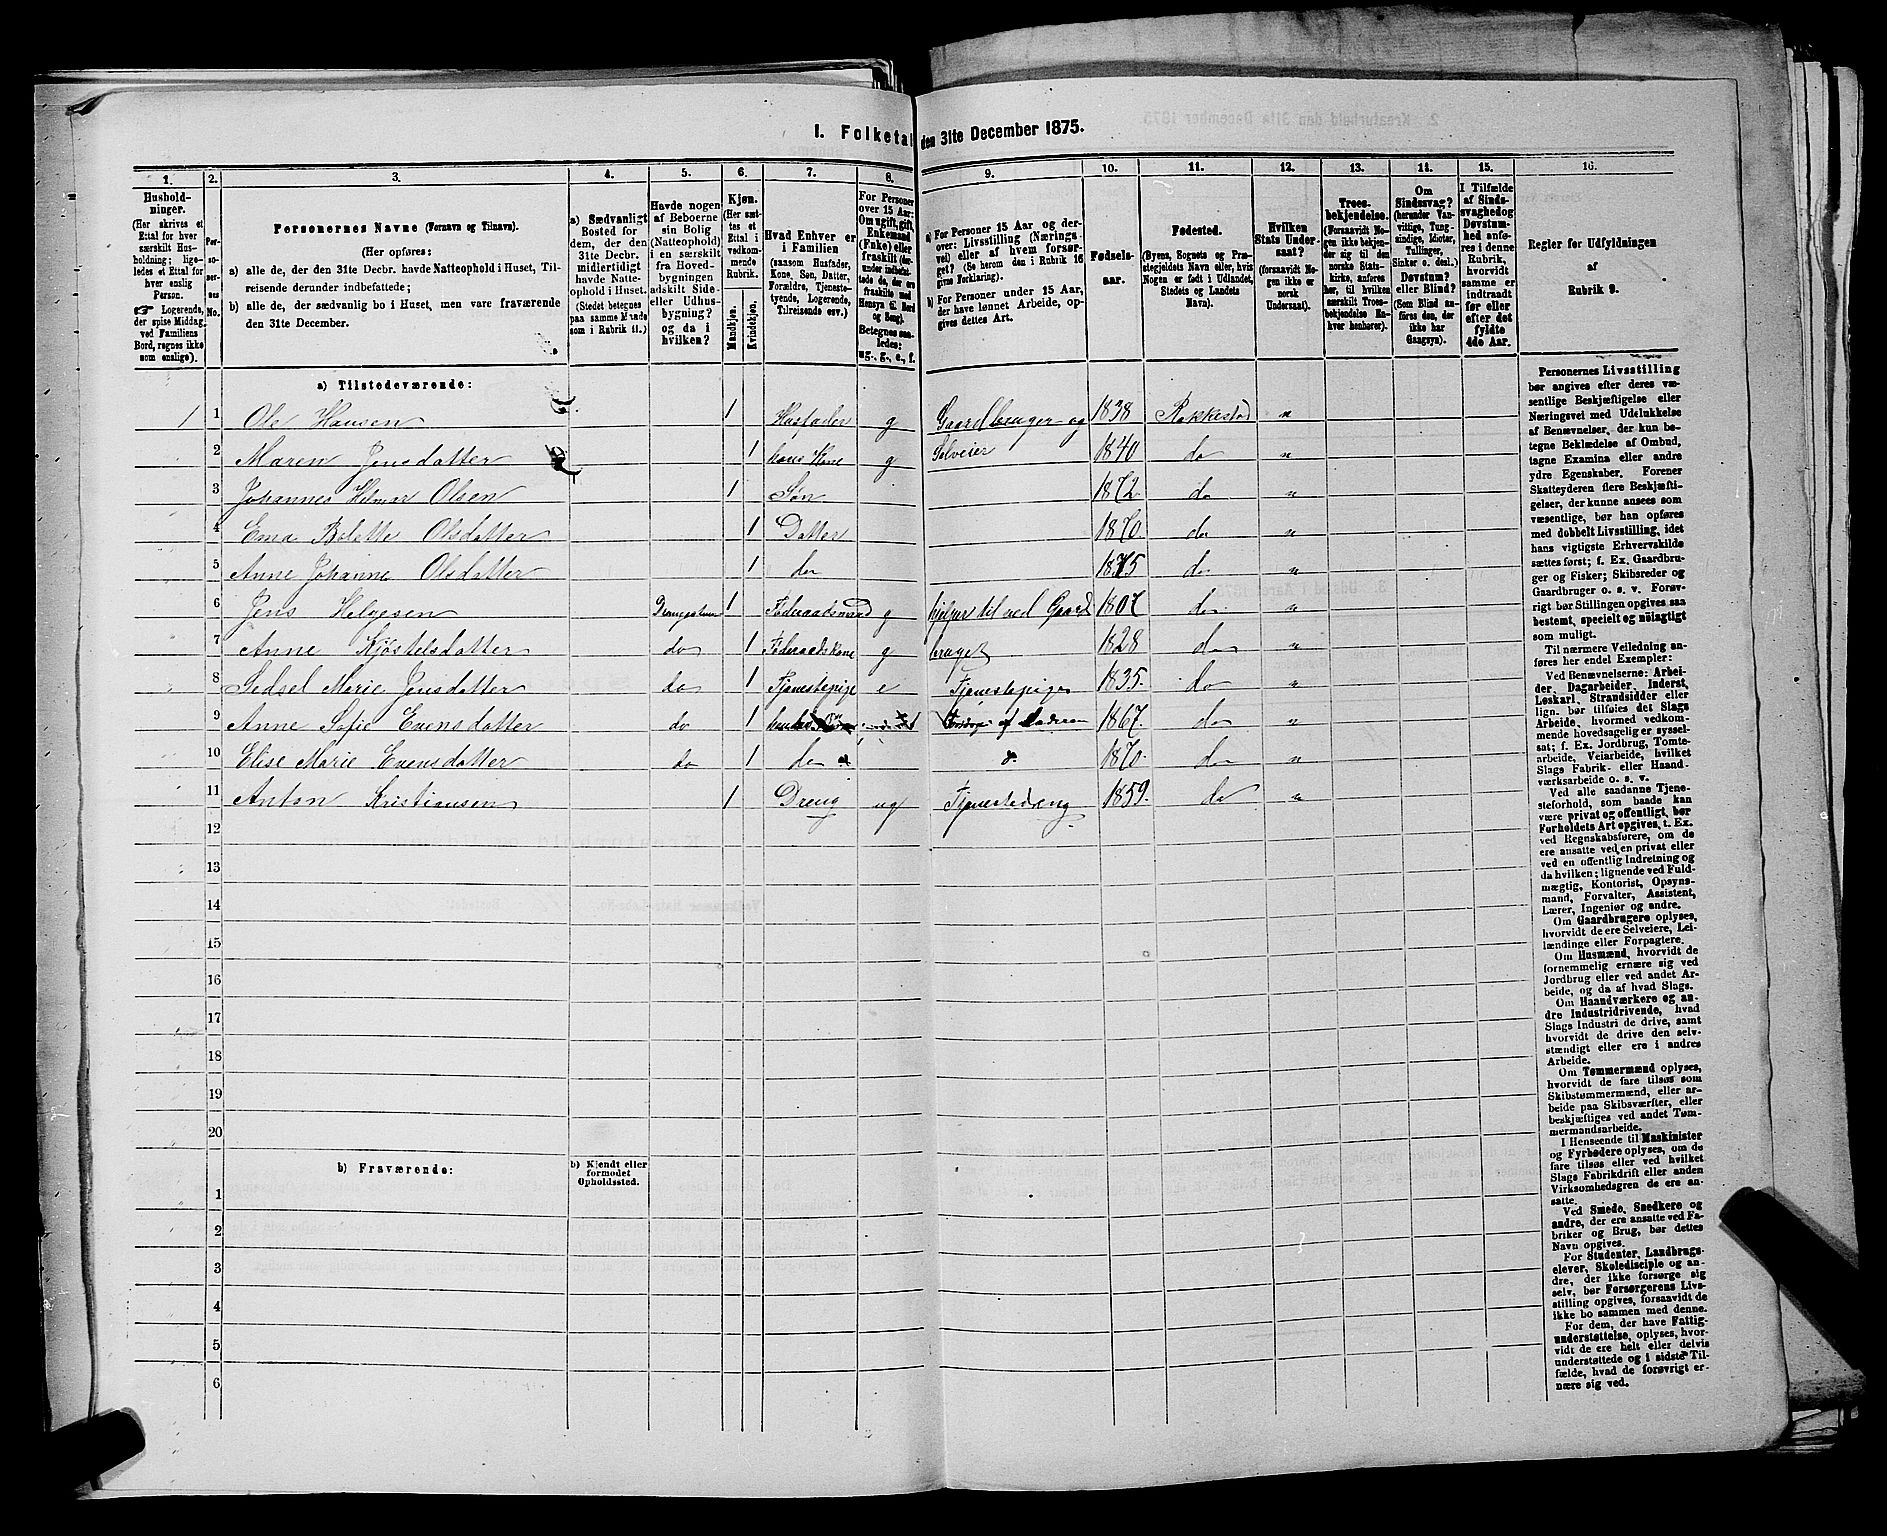 I. Folketal den 31te December 1875.
1. 2. 3. 4. 5. 6. 7. 8. 9. 10. 11. 12. 13. 14. 15. 16.
Husholdninger.
(Her skrives et Ettal for hver særskilt Husholdning; ligeledes et Ettal for hver enslig Person.
☞ Logerende, der spise Middag ved Familiens Bord, regnes ikke som enslige).
Personernes No.
Personernes Navne (Fornavn og Tilnavn).
(Her opføres:
a) alle de, der den 31te Decbr. havde Natteophold i Huset, Tilreisende derunder indbefattede;
b) alle de, der sædvanlig bo i Huset, men vare fraværende den 31te December.
a) Sædvanligt Bosted for dem, der den 31te Decbr. midlertidigt havde Natteophold i Huset. (Stedet betegnes paa samme Maade som i Rubrik 11.)
Havde nogen af Beboerne sin Bolig (Natteophold) i en særskilt fra Hovedbygningen adskilt Side- eller Udhusbygning? og da i hvilken?
Kjøn. (Her sættes et Ettal i vedkommende Rubrik.
Mandkjøn. Kvindekjøn.
Hvad Enhver er i Familien (saasom Husfader, Kone, Søn, Datter, Forældre, Tjenestetyende, Logerende, Tilreisende osv.)
For Personer over 15 Aar: Om ugift, gift, Enkemand (Enke) eller fraskilt (derunder indbefattede de, der ere fraskilte med Hensyn til Bord og Seng). Betegnes saaledes: ug., g., e., f.
a) For Personer 15 Aar og derover: Livsstilling (Næringsvei) eller af hvem forsørget? (Se herom den i Rubrik 16 givne Forklaring).
b) For Personer under 15 Aar, der have lønnet Arbeide, opgives dettes Art.
Fødselsaar.
Fødested. (Byens, Sognets og Præstegjeldets Navn eller, hvis Nogen er født i Udlandet, Stedets og Landets Navn).
Hvilken Stats Undersaat? (forsaavidt Nogen ikke er norsk Undersaat).
Troesbekjendelse. (Forsaavidt Nogen ikke bekjender sig til den norske Statskirke, anføres her, til hvilken særskilt Troesbekjendelse Enhver henhører).
Om Sindssvag? (herunder Vanvittige, Tungsindige, Idioter, Tullinger, Sinker o. desl.) Døvstum? eller Blind? (Som Blind anføres den, der ikke har Gangsyn).
I Tilfælde af Sindssvaghed og Døvstumhed anføres i denne Rubrik, hvorvidt samme er indtraadt før eller efter det fyldte 4de Aar.
Regler for Udfyldningen af Rubrik 9.
a) Tilstedeværende:
1 1 Ole Hansen 1 Husfader g Gaardbruger og 1838 Rakkestad n
2 Maren Jensdatter 1 hans Kone g Selveier 1840 do n
3 Johannes Helmer Olsen 1 Søn 1872 do n
4 Ema Bolette Olsdatter 1 Datter 1870 do n
5 Anne Johanne Olsdatter 1 do 1875 do n
6 Jens Helgesen 1 Føderaadsmand g hjelper til ved Gaard 1807 do n
7 Anne Kjøstelsdatter do 1 Føderaadskone g bruget 1828 do n
8 Sedsel Marie Jensdatter do 1 Tjenestepige e Tjenestepige 1835 do n
9 Anne Sofie Evensdatter do 1 1867 do n
10 Elise Marie Evensdatter do 1 do 1870 do n
11 Anton Kristiansen 1 Dreng ug Tjenestedreng 1859 do n
12
13
14
15
16
17
18
19
20
b) Fraværende:
b) Kjendt eller formodet Opholdssted.
1
2
3
4
5
6
Personernes Livsstilling
bør angives efter deres væ-
sentlige Beskjæftigelse eller
Næringsvei med Udelukkelse
af Benævnelser, der kun be-
tegne Beklædelse af Ombud,
tagne Examina eller andre
ydre Egenskaber. Forener
Skatteyderen flere Beskjæfti-
gelser, der kunne ansees som
væsentlige, bør han opføres
med dobbelt Livsstilling, idet
hans vigtigste Erhvervskilde
sættes først; f. Ex. Gaardbru-
ger og Fisker; Skibsreder og
Gaardbruger o. s. v. Forøv-
rigt bør Stillingen opgives saa
bestemt, specielt og nöiagtigt
som muligt.
Til nærmere Veiledning an-
føres her endel Exempler:
Ved Benævnelserne: Arbei-
der, Dagarbeider, Inderst,
Løskarl, Strandsidder eller
lign. bør tilføies det Slags
Arbeide, hvormed vedkom-
mende hovedsagelig er syssel-
sat; f. Ex. Jordbrug, Tomte-
arbeide, Veiarbeide, hvilket
Slags Fabrik- eller Haand-
værksarbeide o. s. v.
Ved alle saadanne Tjene-
steforhold, som baade kan
være privat og offentligt, bør
Forholdets Art opgives, t. Ex.
ved Regnskabsførere, om de
ere ansatte ved en privat eller
ved en offentlig Indretning og
da hvilken; lignende ved Fuld-
mægtig, Kontorist, Opsyns-
mand, Forvalter, Assistent,
Lærer, Ingeniør og andre.
Om Gaardbrugere oplyses,
hvorvidt de ere Selveiere, Lei-
lændinge eller Forpagtere.
Om Husmænd, hvorvidt de
fornemmelig ernære sig ved
Jordbrug eller ved andet Ar-
beide, og da af hvad Slags.
Om Haandværkere og an-
dre Industridrivende, hvad
Slags Industri de drive, samt
hvorvidt de drive den selv-
stændigt eller ere i andres
Arbeide.
Om Tømmermænd oplyses,
hvorvidt de fare tilsøs som
Skibstømmermænd, eller ar-
beide paa Skibsværfter, eller
beskjæftiges ved andet Tøm-
mermandsarbeide.
I Henseende til Maskinister
og Fyrbødere oplyses, om de
fare tilsøs eller ved hvilket
Slags Fabrikdrift eller anden
Virksomhedsgren de ere an-
satte.
Ved Smede, Snedkere og
andre, der ere ansatte ved Fa-
briker og Brug, bør dettes
Navn opgives.
For Studenter, Landbrugs-
elever, Skoledisciple og an-
dre, der ikke forsørge sig
selv, bør Forsørgerens Livs-
stilling opgives, forsaavidt de
ikke bo sammen med denne.
For dem, der have Fattig-
understøttelse, oplyses, hvor-
vidt de ere helt eller delvis
understøttede og i sidste Til-
fælde, hvad de forøvrigt er-
nære sig ved.